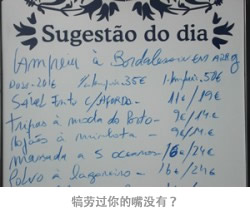 Sugestão do dia
Lampreia à Bordalesa
Dose - 20€ 1/2 Lampreia 35€ 1 Lampreia
Sável Frito c/Açorda - 11€/19€
Tripas à moda do Porto - 9€/14€
Rojões à minhota - 9€/14€
Massada 5 oceanos - 16€/24€
Polvo à lagareiro - 16€/24€
犒劳过你的嘴没有？